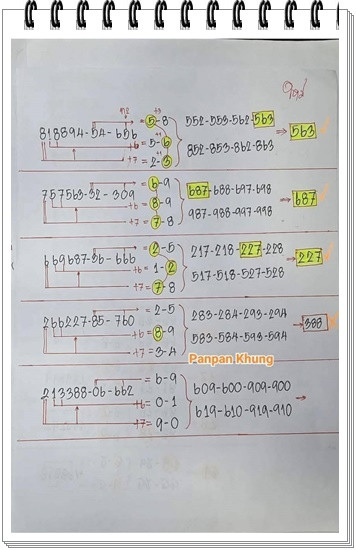 บน
+2 +3
= 5-8
552-553-562-563
818894-54-656
+6 = 5-6
⇒ 563
+7 = 2-3
852-853-862-863
= 6-9
687-688-697-698
757563-32-309
+6 = 8-9
⇒ 687
+7 = 7-8
987-988-997-998
= 2-5
217-218-227-228
669687-36-666
+6 = 1-2
⇒ 227
+7 = 7-8
517-518-527-528
= 2-5
283-284-293-294
266227-85-760
+6 = 8-9
→ 388
+7 = 3-4
583-584-593-594
Panpan Khung
= 6-9
609-600-909-900
213388-06-662
+6 = 0-1
→
+7 = 9-0
619-610-919-910